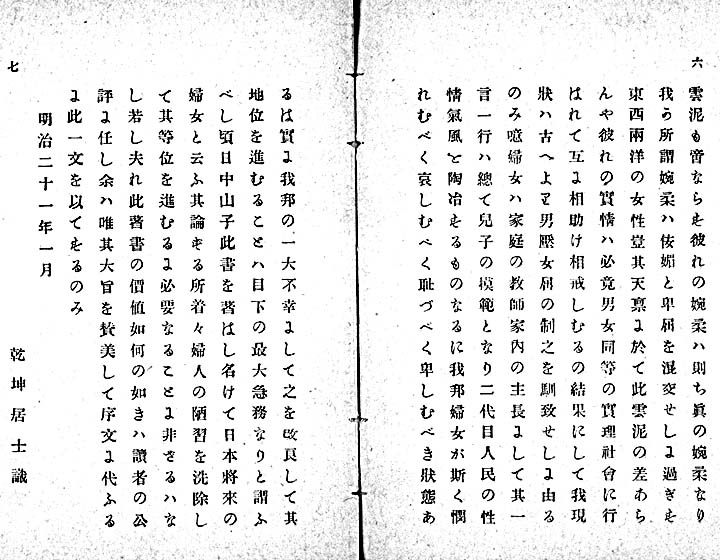 六
雲泥も啻ならも彼れの婉柔ハ則ち眞の婉柔なり
我う所謂婉柔ハ侫媚と卑屈を混交せしよ過ぎも
東西兩洋の女性豈其天禀よ於て此雲泥の差あら
んや彼れの實情ハ必竟男女同等の實理社會に行
はれて互よ相助け相戒しむるの結果にして我現
狀ハ古へよ𪜈男壓女屈の制之を馴致せしよ由る
のみ噫婦女ハ家庭の教師家內の主長よして其一
言一行ハ總て兒子の摸範となり二代目人民の性
情氣風を陶冶もるものなるに我邦婦女が斯く憫
れむべく哀しむべく耻づべく卑しむべき狀態あ
七
るは實よ我邦の一大不幸よして之を改良して其
地位を進むることハ目下の最大急務なりと謂ふ
べし頃日中山子此書を著はし名けて日本將來の
婦女と云ふ其論もる所着々婦人の陋習を洗除し
て其等位を進むるよ必要なることよ非さるハな
し若し夫れ此著書の價値如何の如きハ讀者の公
評よ任し余ハ唯其大旨を贊美して序文よ代ふる
よ此一文を以てもるのみ
明治二十一年一月
乾坤居士識